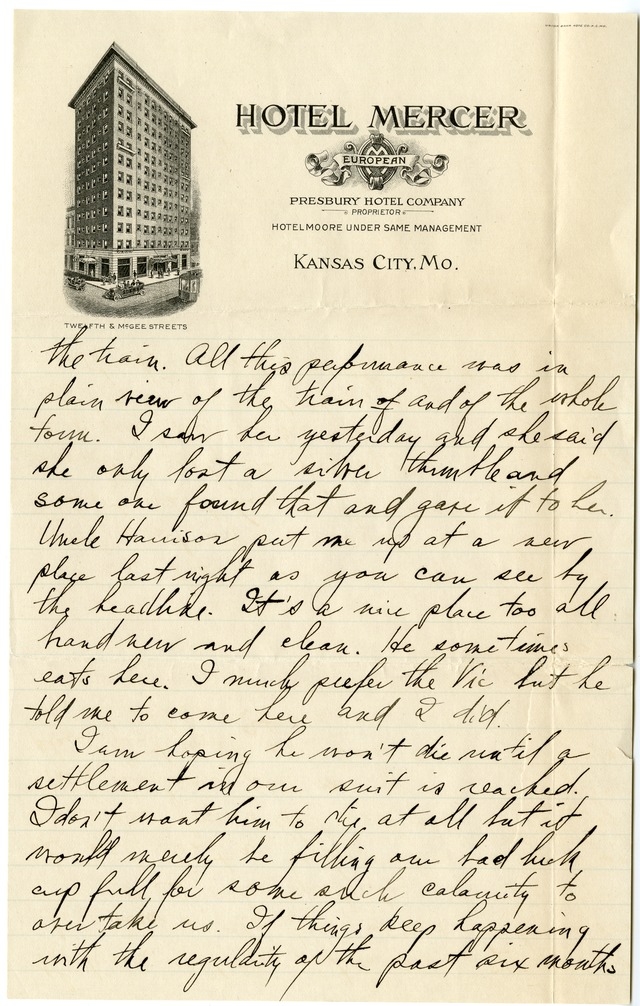 HOTEL MERCER
EUROPEAN
PRESBURY HOTEL COMPANY
PROPRIETOR
HOTEL MOORE UNDER SAME MANAGEMENT
KANSAS CITY, MO.
TWELFTH & McGEE STREETS
the train. All this performance was in
plain view of the train of and of the whole
town. I saw her yesterday and she said
she only lost a silver thimble and
some one found that and gave it to her.
Uncle Harrison put me up at a new
place last night as you can see by
the headline. It's a nice place too all
brand new and clean. He sometimes
eats here. I much prefer the Vic but he
told me to come here and I did.
I am hoping he won't die until a
settlement in our suit is reached.
I don't want him to die at all but it
would merely be filling our bad luck
cup full for some such calamity to
over take us. If things keep happening
with the regularity of the past six months